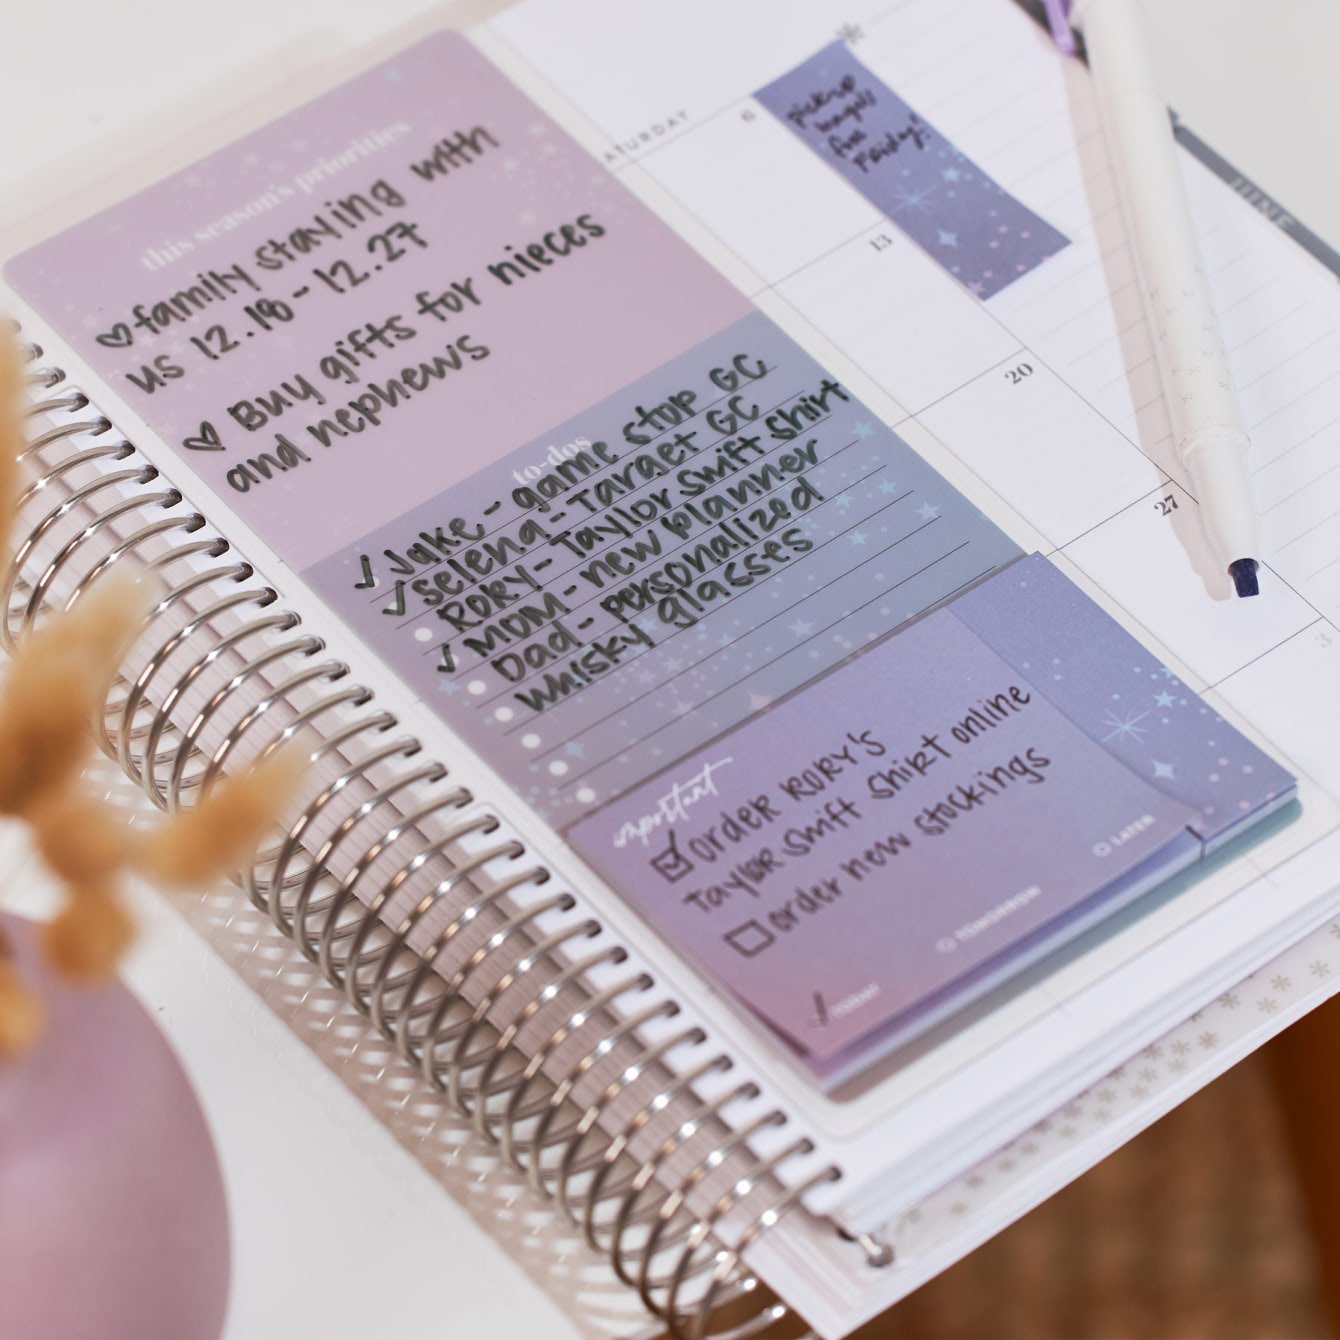 this season's priorities
♡ family staying with
us 12.18 - 12.27
♡ Buy gifts for nieces
and nephews
to-dos
✓ Jake - game stop GC
✓ Selena - Target GC
Rory - Taylor Swift Shirt
✓ Mom - new planner
Dad - personalized
whisky glasses
important
☑ order Rory's
Taylor Swift Shirt online
☐ order new stockings
✓ TODAY
TOMORROW
LATER
ATURDAY
6
pick up
for
Friday!
13
20
27
3